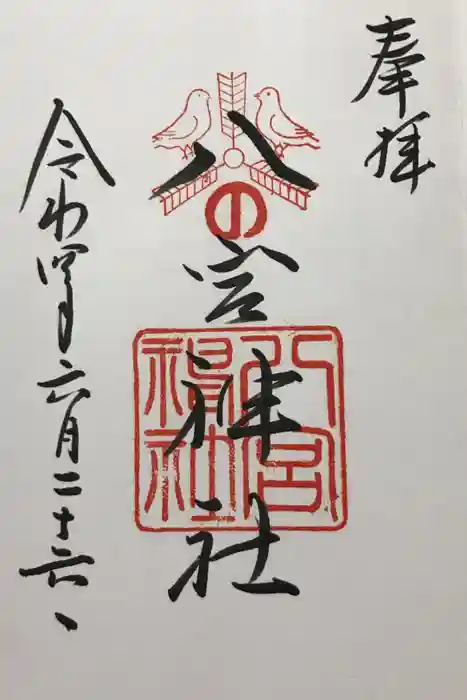 奉拝
八の宮神社
八宮神社
令和四年六月二十六日